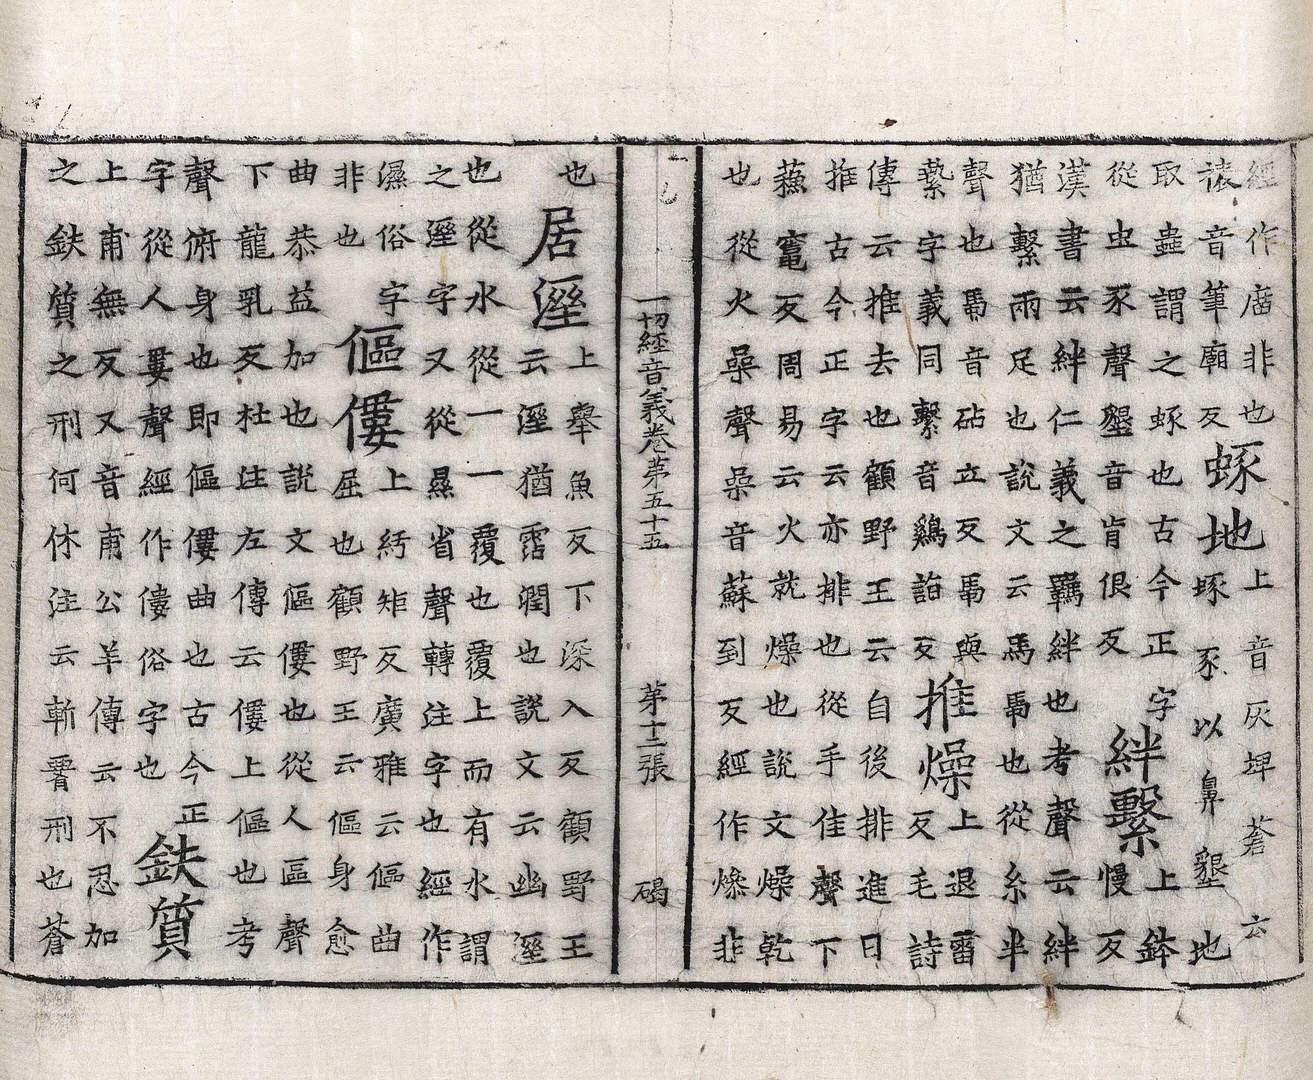 經作庿非也
裱音筆廟反
地
上音灰埤蒼云
豕以鼻墾地
取蟲謂之也古今正字
從虫豕聲墾音肯佷反
絆繫
上鉢
慢反
漢書云絆仁義之羈絆也考聲云絆
猶繫兩足也說文云馬馽也從糸半
聲也馽音砧立反馽與
縶字義同繫音鷄詣反
推燥
上退雷
反毛詩
傳云推去也顧野王云自後排進曰
推古今正字云亦排也從手隹聲下
蘓竃反周易云火就燥也說文燥乾
也從火喿聲喿音蘇到反經作㷮非
一切經音義卷第五十五　第十二張　碣
也
居溼
上舉魚反下深入反顧野王
云溼猶霑潤也說文云幽溼
也從水從一一覆也覆上而有水謂
之溼字又從㬎省聲轉注字也經作
濕俗字
非也
傴僂
上紆矩反廣雅云傴曲
屈也顧野王云傴身愈
曲恭益加也說文傴僂也從人區聲
下龍乳反杜注左傳云僂上傴也考
聲俯身也即傴僂曲也古今正
字從人婁聲經作僂俗字也
鈇質
上甫無反又音甫公羊傳云不忍加
之鈇質之刑何休注云斬署刑也蒼